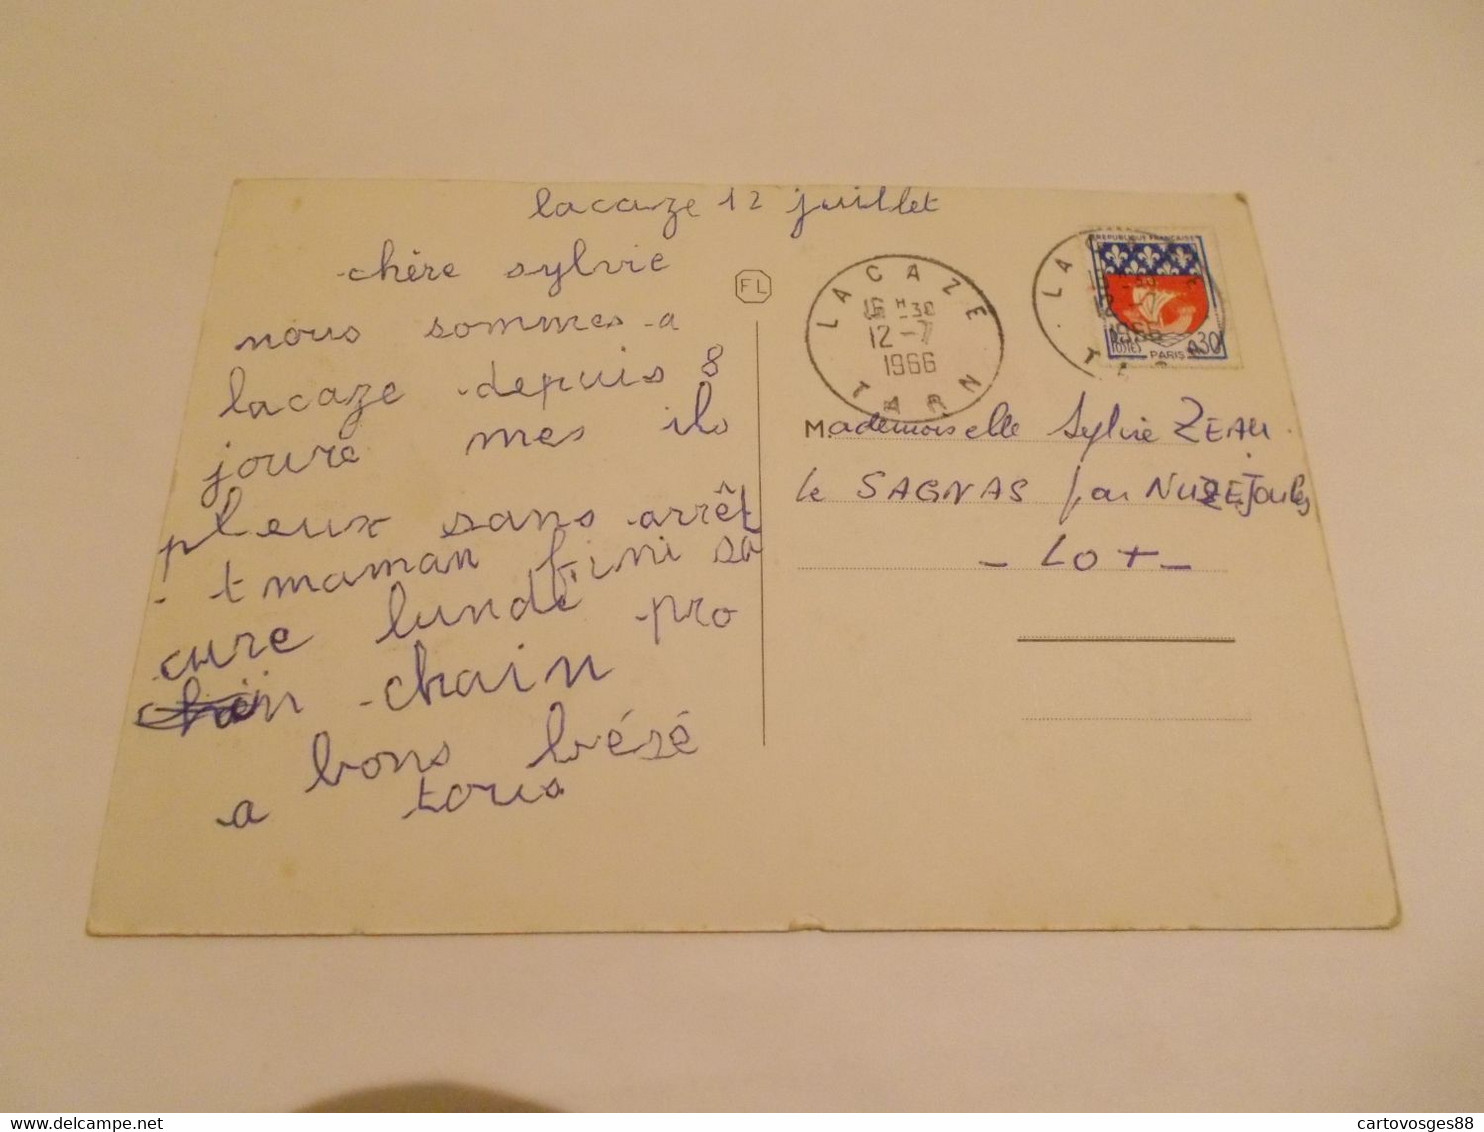 lacaze 12 juillet
chère sylvie
nous sommes a
lacaze depuis 8
joure mes ils
pleux sans arrêt
t maman fini sa
cure lunde pro
chain
a bons bézé
a tous
FL
LACAZE
16 H 30
12 - 7
1966
TARN
LACAZE
12 - 7
1966
TARN
REPUBLIQUE FRANÇAISE
POSTES
PARIS
0,30
Mademoiselle Sylvie ZEAU
le SAGNAS par NUZEJouls
- LOT -
cartovosges88